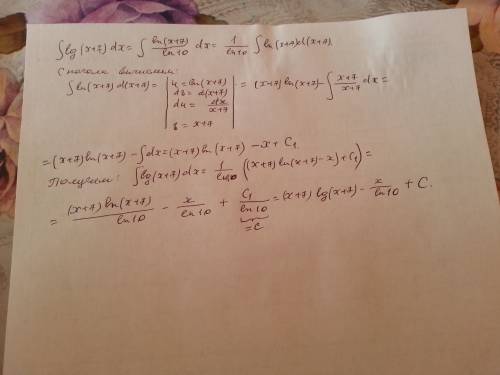 ∫lg(x+7)dx = ∫ ln(x+7)/ln10 dx = 1/ln10 ∫ln(x+7)d(x+7).
Сначала вычислим:
∫ln(x+7)d(x+7) = | u = ln(x+7) dv = d(x+7) du = dx/(x+7) v = x+7 | = (x+7)ln(x+7) - ∫ (x+7)/(x+7) dx =
= (x+7)ln(x+7) - ∫dx = (x+7)ln(x+7) - x + C₁
Получим: ∫lg(x+7)dx = 1/ln10 ((x+7)ln(x+7) - x) + C₁) =
= (x+7)ln(x+7)/ln10 - x/ln10 + C₁/ln10 = (x+7)lg(x+7) - x/ln10 + C.
= C